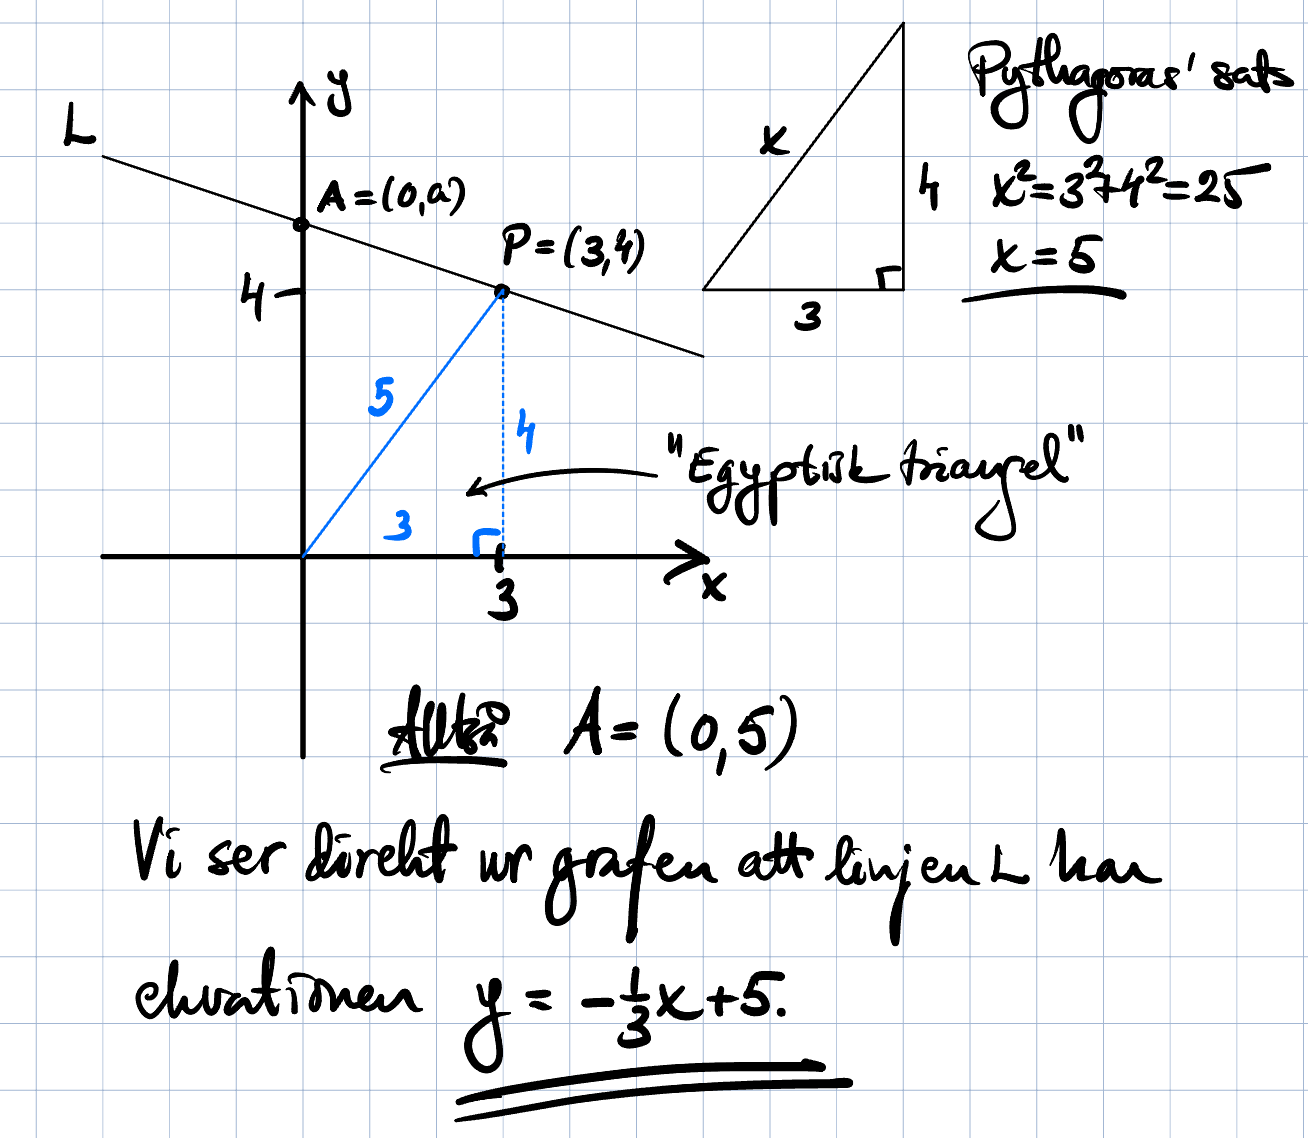 y
L
A=(0,a)
P=(3,4)
4
5
4
3
3
x
"Egyptisk triangel"
x
4
3
Pythagoras' sats
x²=3²+4²=25
x=5
Alltså A=(0,5)
Vi ser direkt ur grafen att linjen L har
ekvationen y = -1/3x+5.